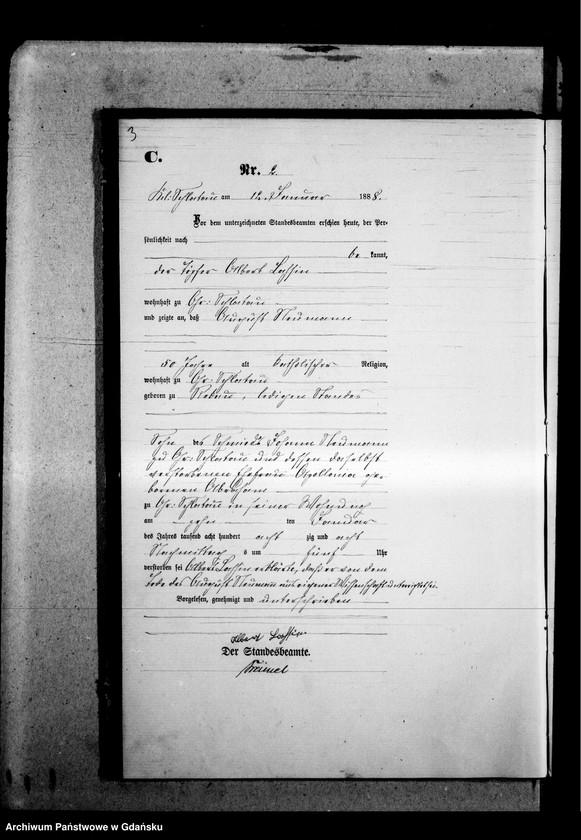 3
C.
Nr. 2.
Kl. Schlatau am 12. Januar 1888.
Vor dem unterzeichneten Standesbeamten erschien heute, der Per-
sönlichkeit nach
be kannt,
der Albert
wohnhaft zu Gr. Schlatau
und zeigte an, daß August Neumann
80 Jahre alt katholischer Religion,
wohnhaft zu Gr. Schlatau
geboren zu Rekau, ledigen Standes
Sohn des Schmieds Johann Neumann
zu Gr. Schlatau und dessen daselbst
verstorbenen Ehefrau Apollonia ge-
borenen
zu Gr. Schlatau in seiner Wohnung
am zehn ten Januar
des Jahres tausend acht hundert acht zig und acht
Nachmittag s um fünf Uhr
verstorben sei Albert erklärte, daß er von dem
Tode des August Neumann aus eigener Wissenschaft unterrichtet sei.
Vorgelesen, genehmigt und unterschrieben
Albert
Der Standesbeamte.
Archiwum Państwowe w Gdańsku